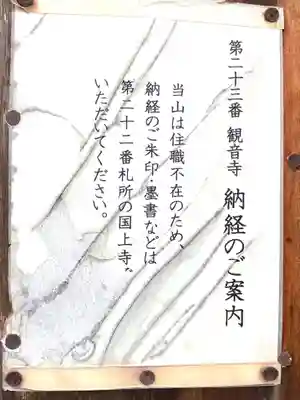 第二十三番 観音寺 納経のご案内
当山は住職不在のため、
納経のご朱印・墨書などは
第二十二番札所の国上寺〟
いただいてください。